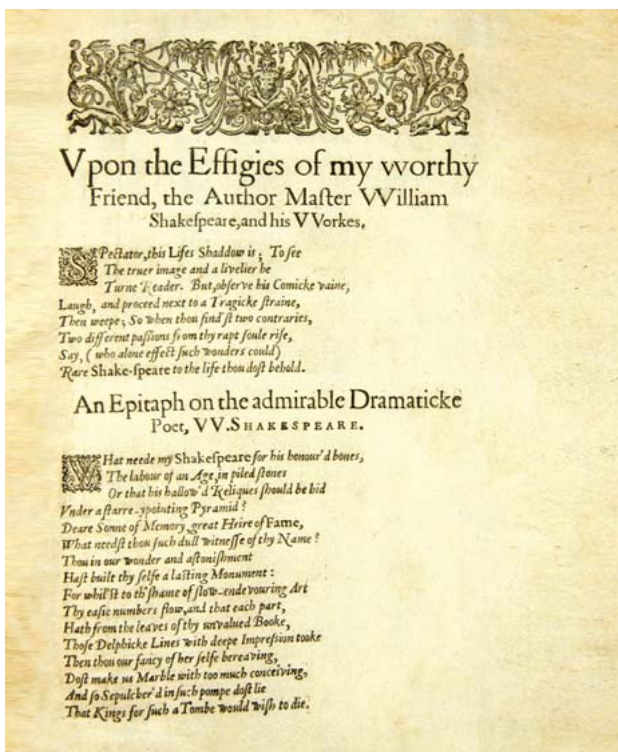 Vpon the Effigies of my worthy
Friend, the Author Maſter VVilliam
Shakeſpeare, and his VVorkes.
SPectator, this Lifes Shaddow is; To ſee
The truer image and a livelier he
Turne Reader. But, obſerve his Comicke vaine,
Laugh, and proceed next to a Tragicke ſtraine,
Then weepe; So when thou find'ſt two contraries,
Two different paſsions from thy rapt ſoule riſe,
Say, (who alone effect ſuch wonders could)
Rare Shake-ſpeare to the life thou doſt behold.
An Epitaph on the admirable Dramaticke
Poet, VV. SHAKESPEARE.
WHat neede my Shakeſpeare for his honour'd bones,
The labour of an Age, in piled ſtones
Or that his hallow'd Reliques ſhould be hid
Vnder a ſtarre-ypointing Pyramid?
Deare Sonne of Memory, great Heire of Fame,
What needſt thou ſuch dull witneſſe of thy Name?
Thou in our wonder and aſtoniſhment
Haſt built thy ſelfe a laſting Monument:
For whil'ſt to th' ſhame of ſlow-endevouring Art
Thy eaſie numbers flow, and that each part,
Hath from the leaves of thy unvalued Booke,
Thoſe Delphicke Lines with deepe Impreſsion tooke
Then thou our fancy of her ſelfe bereaving,
Doſt make us Marble with too much conceiving,
And ſo Sepulcher'd in ſuch pompe doſt lie
That Kings for ſuch a Tombe would wiſh to die.